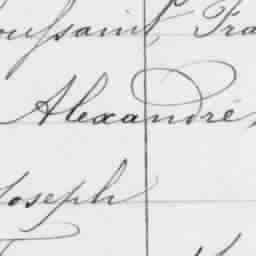 oussaint Fra
Alexandre,
Joseph